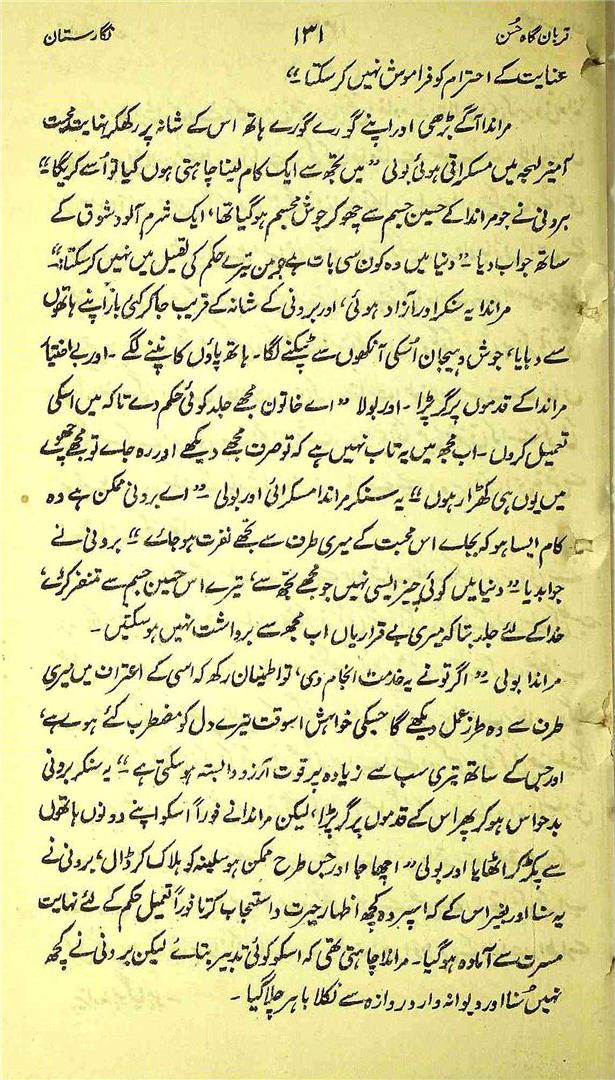 قربان گاہ حُسن ۱۳۱ نگارستان
عنایت کے احترام کو فراموش نہیں کر سکتا۔“
مراندا آگے بڑھی اور اپنے گورے گورے ہاتھ اس کے شانہ پر رکھکر نہایت محبت
آمیز لہجہ میں مسکراتی ہوئی بولی ”میں تجھ سے ایک کام لینا چاہتی ہوں کیا تو اُسے کریگا“
برونی نے جو مراندا کے حسین جسم سے چھو کر جوش مجسم ہو گیا تھا، ایک شرم آلود شوق کے
ساتھ جواب دیا ۔”دنیا میں وہ کون سی بات ہے جو میں تیرے حکم کی تعمیل میں نہیں کر سکتا؟“
مراندا یہ سنکر اور آزاد ہوئی، اور برونی کے شانہ کے قریب جا کر کئی بار اپنے ہاتھوں
سے دبایا، جوش و ہیجان اُسکی آنکھوں سے ٹپکنے لگا۔ ہاتھ پاؤں کانپنے لگے ۔ اور بے اختیار
مراندا کے قدموں پر گر پڑا ۔ اور بولا ”اے خاتون مجھے جلد کوئی حکم دے تاکہ میں اسکی
تعمیل کروں ۔ اب مجھ میں یہ تاب نہیں ہے کہ تو صرف مجھے دیکھے اور رہ جاے تو مجھے چھوئے
میں یوں ہی کھڑا رہوں“ یہ سنکر مراندا مسکرائی اور بولی ۔”اے برونی ممکن ہے وہ
کام ایسا ہو کہ بجاے اس محبت کے میری طرف سے تجھے نفرت ہو جائے“ برونی نے
جواب دیا ”دنیا میں کوئی چیز ایسی نہیں جو مجھے تجھ سے، تیرے اس حسین جسم سے متنفر کر دے،
خدا کے لئے جلد بتا کہ میری بے قراریاں اب مجھ سے برداشت نہیں ہو سکتیں ۔
مراندا بولی ۔”اگر تو نے یہ خدمت انجام دی، تو اطینان رکھ کہ اسی کے اعتراف میں میری
طرف سے وہ طرز عمل دیکھے گا جسکی خواہش اسوقت تیرے دل کو مضطرب کئے ہوے ہے،
اور جس کے ساتھ تیری سب سے زیادہ پر قوت آرزو وابستہ ہو سکتی ہے“ یہ سنکر برونی
بد حواس ہو کر پھر اس کے قدموں پر گر پڑا، لیکن مراندا نے فوراً اسکو اپنے دونوں ہاتھوں
سے پکڑ کر اٹھایا اور بولی ”اچھا جا اور جس طرح ممکن ہو سلینہ کو ہلاک کر ڈال، برونی نے
یہ سنا اور بغیر اس کے کہ اسپر وہ کچھ اظہار حیرت و استعجاب کرتا فوراً تعمیل حکم کے لئے نہایت
مسرت سے آمادہ ہو گیا۔ مراندا چاہتی تھی کہ اسکو کوئی تدبیر بتائے لیکن برونی نے کچھ
نہیں سُنا اور دیوانہ وار دروازہ سے نکلا باہر چلا گیا ۔